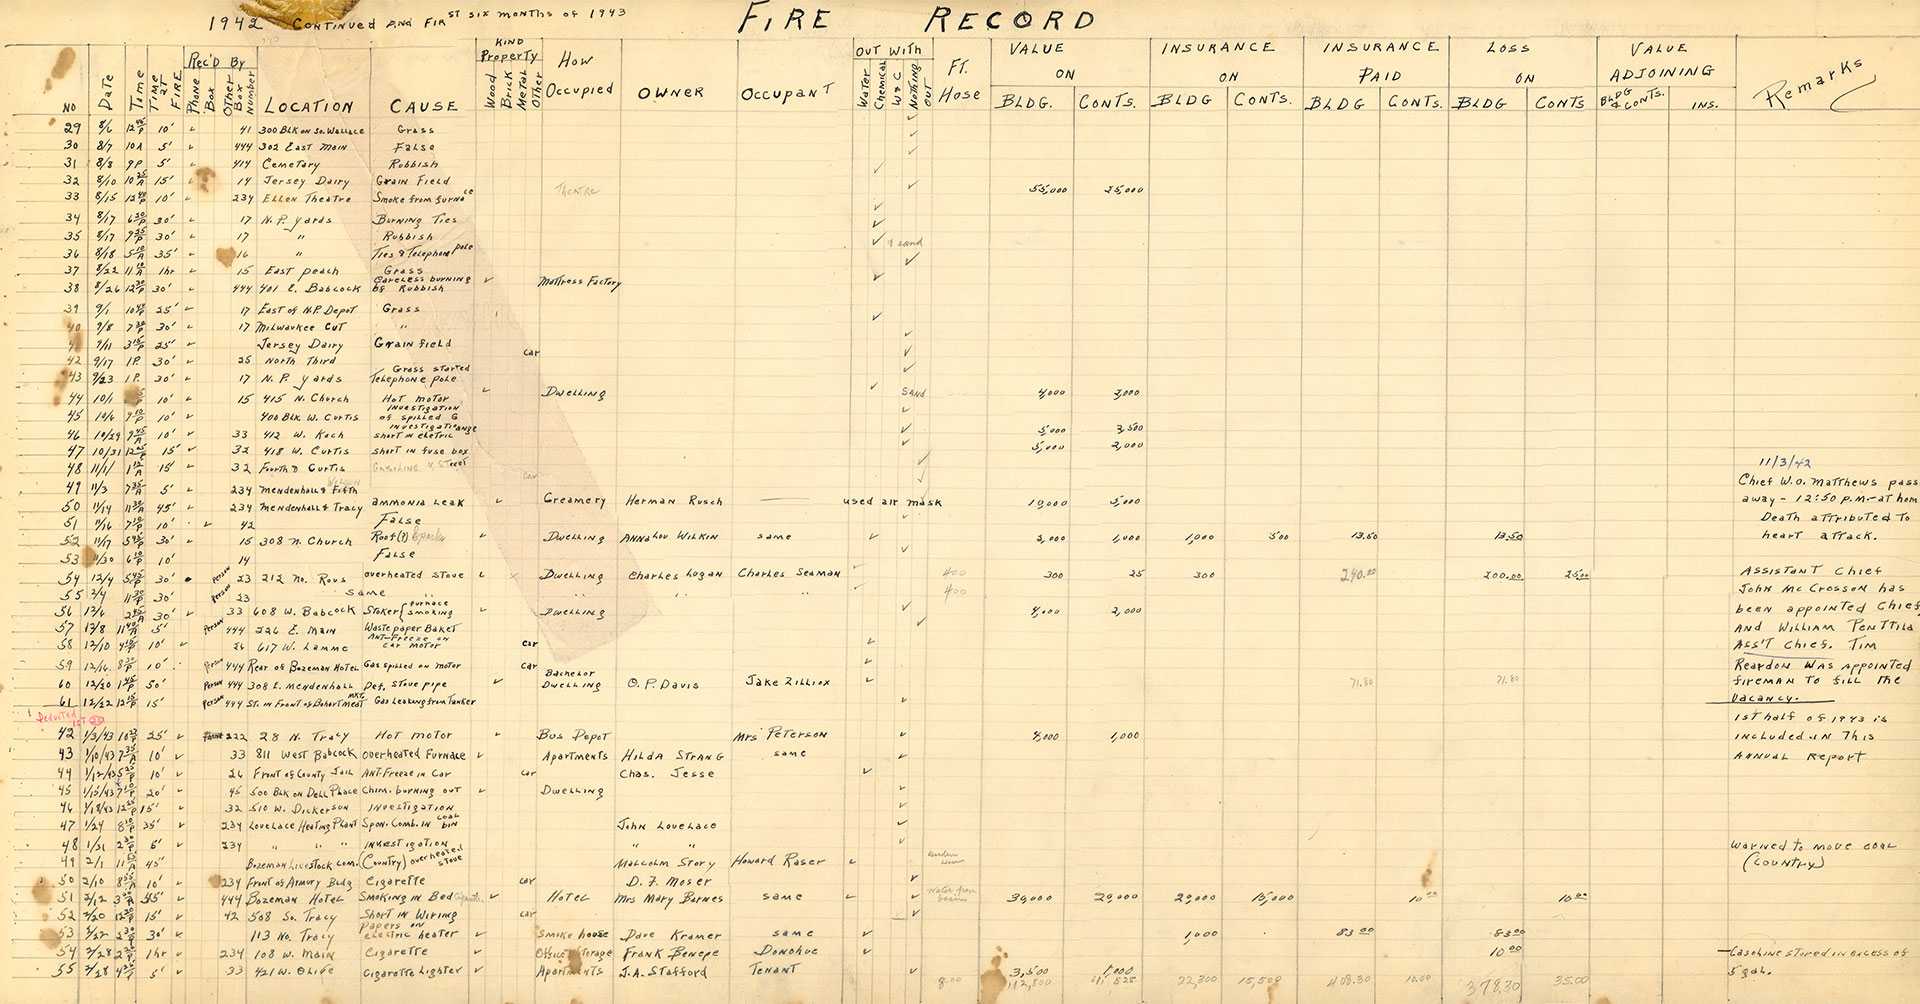 1942 Continued and First six months of 1943 FIRE RECORD
NO Date Time Time at Fire Rec'd By Phone Box Other Box Number LOCATION CAUSE KIND Property Wood Brick Metal Other How Occupied OWNER Occupant Out With Water Chemical W & C Nothing out Ft. Hose VALUE ON BLDG. CONTS. INSURANCE ON BLDG CONTS. INSURANCE PAID BLDG CONTS. LOSS ON BLDG CONTS VALUE ADJOINING BLDG & CONTS. INS. Remarks
29 8/6 10' 41 300 Blk on So. Wallace Grass
30 8/7 10A 5' 444 302 East Main False
31 8/8 9P 5' 414 Cemetary Rubbish
32 8/10 15' 14 Jersey Dairy Grain Field
33 8/15 10' 234 Ellen Theatre Smoke from furnace Theatre 55,000 25,000
34 8/17 30' 17 N.P. yards Burning Ties
35 8/17 30' 17 " Rubbish
36 8/18 35' 16 " Ties & Telephone pole & sand
37 8/22 1hr 15 East Peach Grass
38 8/26 30' 444 401 E. Babcock Careless burning of Rubbish Mattress Factory
39 9/1 25' 17 East of N.P. Depot Grass
40 9/8 30' 17 Milwaukee Cut "
41 9/11 25' Jersey Dairy Grain field
42 9/17 1P. 30' 25 North Third car
43 9/23 1P. 30' 17 N.P. yards Grass started Telephone pole
44 10/1 10' 15 415 N. Church Hot motor Dwelling Sand 4,000 3,000
45 10/6 10' 400 Blk W. Curtis Investigation of spilled G
46 10/29 10' 33 412 W. Koch Investigation short in eletric range 5,000 2,500
47 10/31 15' 32 418 W. Curtis short in fuse box 5,000 2,000
48 11/1 15' 32 Fourth & Curtis Gasoline N Street car
49 11/3 5' 234 Mendenhall & Fifth
50 11/14 45' 234 Mendenhall & Tracy ammonia leak Creamery Herman Rusch used air mask 19,000 5,000
51 11/16 10' 42 False
52 11/17 30' 15 308 N. Church Roof(?) Sparks Dwelling Annalou Wilkin same 2,000 1,000 1,000 500 13.50 13.50
53 11/30 10' 14 False
54 12/4 30' Person 23 212 No. Rous overheated stove Dwelling Charles Logan Charles Seaman 400 300 25 300 240.00 200.00 25.00
55 30' Person 23 same " " " 400
56 12/6 30' 33 608 W. Babcock Stoker { furnace smoking Dwelling 4,000 2,000
57 12/8 5' Person 444 226 E. Main Waste paper Basket
58 12/10 10' 26 617 W. Lamme Ant-Freeze on car motor car
59 12/16 10' Person 444 Rear of Bozeman Hotel Gas spilled on motor car
60 12/20 50' Person 444 308 E. Mendenhall Def. stove pipe Bachelor Dwelling O.P. Davis Jake Zilliox 71.80 71.80
61 12/22 15' Person 444 St. in Front of Bohart Meat Mkt. Gas leaking from Tanker
Deducted 1st
42 1/3/43 25' 222 28 N. Tracy Hot motor Bus Depot Mrs Peterson 4,000 1,000
43 1/10/43 10' 33 811 West Babcock overheated Furnace Apartments Hilda Strang same
44 1/12/43 10' 26 Front of County Jail Ant-Freeze in Car car Chas. Jesse
45 1/15/43 20' 45 500 Blk on Dell Place Chim. burning out Dwelling
46 1/18/43 15' 32 510 W. Dickerson Investigation
47 1/24 35' 234 Lovelace Heating Plant Spon. Comb. in coal bin John Lovelace
48 1/31 5' 234 " " " Investigation " "
49 2/1 45" Bozeman Livestock Com. (Country) overheated stove Malcolm Story Howard Raser
50 2/10 10' 234 Front of Armory Bldg Cigarette car D.F. Moser
51 2/12 45' 444 Bozeman Hotel Smoking in Bed Cigarette Hotel Mrs Mary Barnes same Water from basin 39,000 29,000 29,000 15,000 10.00 10.00
52 2/20 15' 42 508 So. Tracy Short in Wiring car
53 2/22 30' 113 No. Tracy Papers on electric heater Smoke house Dave Kramer same 1,000 83.00 83.00
54 2/28 1hr 234 108 W. Main Cigarette Office & Storage Frank Benepe Donohue 10.00
55 2/28 5' 33 421 W. Olive Cigarette Lighter Apartments J.A. Stafford Tenant 3,500 1,000
800 22,300 15,500 408.30 10.00 378.30 35.00
11/3/42
Chief W.O. Matthews pass
away - 12:50 P.M. - at hom
Death attributed to
heart attack.
Assistant Chief
John McCrosson has
been appointed Chief
and William Penttila
Ass't Chief. Tim
Reardon was appointed
fireman to fill the
vacancy.
1st half of 1943 is
included in this
annual report
warned to move coal
(Country)
Gasoline stored in excess of
5 gal.